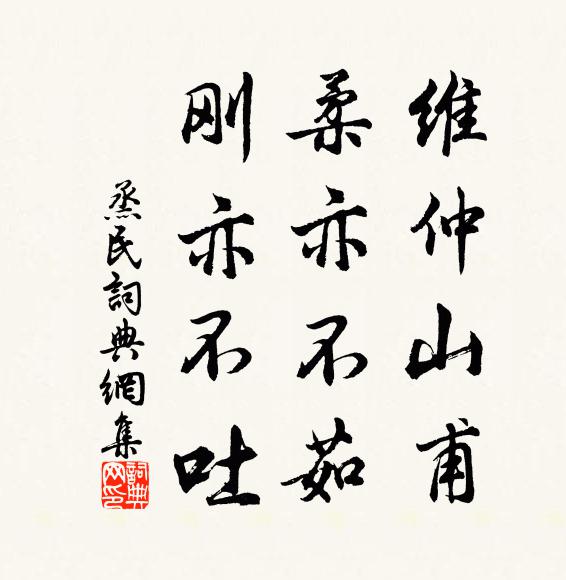 维仲山甫
柔亦不茹
刚亦不吐
烝民詞典網集
詞典网印